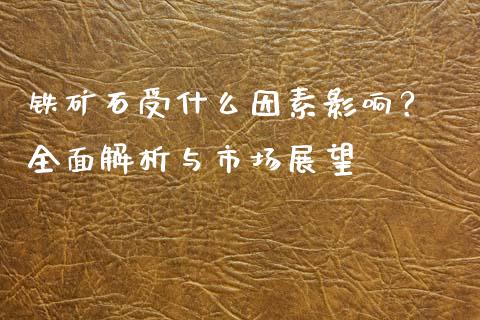 铁矿石受什么因素影响？
全面解析与市场展望